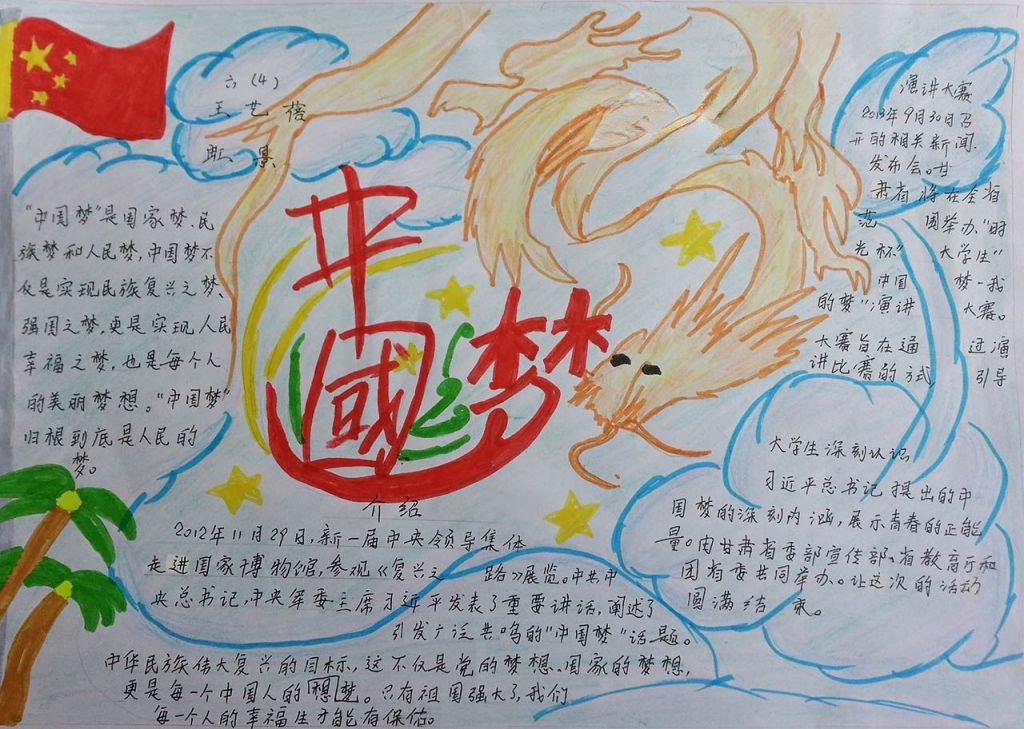 六(4)
王艺
中
國
梦
"中国梦"是国家梦、民
族梦和人民梦,中国梦不
仅是实现民族复兴之梦、
强国之梦,更是实现人民
幸福之梦,也是每个人
的美丽梦想。"中国梦"
归根到底是人民的
梦。
介绍
2012年11月29日,新一届中央领导集体
走进国家博物馆,参观《复兴之路》展览。中共中
央总书记,中央军委主席习近平发表了重要讲话,阐述了
引发广泛共鸣的"中国梦"话题。
中华民族伟大复兴的目标,这不仅是党的梦想、国家的梦想,
更是每一个中国人的想梦。只有祖国强大了,我们
每一个人的幸福生才能有保佑。
演讲大赛
2013年9月30日召
开的相关新闻
发布会。甘
肃省将在全省
范 围举办"时
光杯" 大学生"
中国 梦-我
的梦"演讲 大赛。
大赛旨在通 过演
讲比赛的方式 引导
大学生深刻认识
习近平总书记提出的中
国梦的深刻内涵,展示青春的正能
量。由甘肃省委部宣传部、省教育厅和
团省委共同举办。让这次的活动
圆满结束。